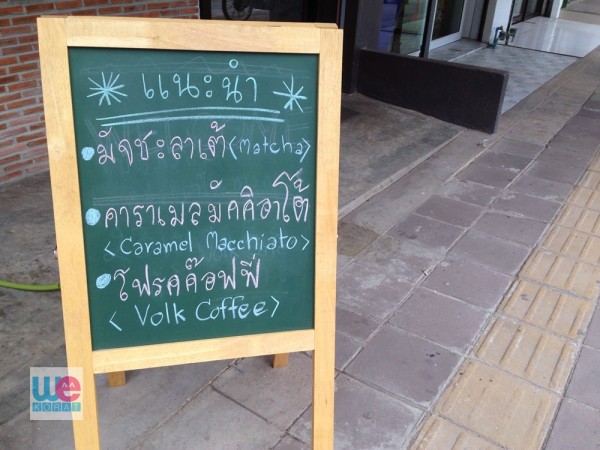 แนะนำ
มัจชะลาเต้ <Matcha>
คาราเมลมัคคิอาโต้
<Caramel Macchiato>
โฟรคค๊อฟฟี่
<Volk Coffee>
we
KORAT